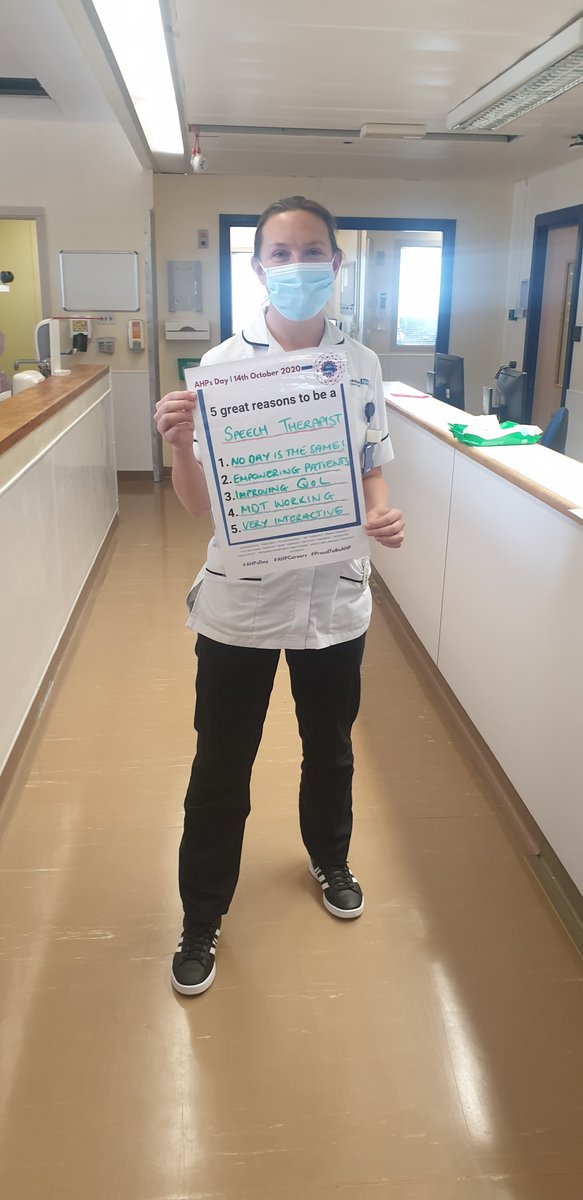 AHPs Day | 14th October 2020
5 great reasons to be a
SPEECH THERAPIST
1. NO DAY IS THE SAME!
2. EMPOWERING PATIENTS
3. IMPROVING QoL
4. MDT WORKING
5. VERY INTERACTIVE
#AHPsDay #AHPCareers #ProudToBeAHP